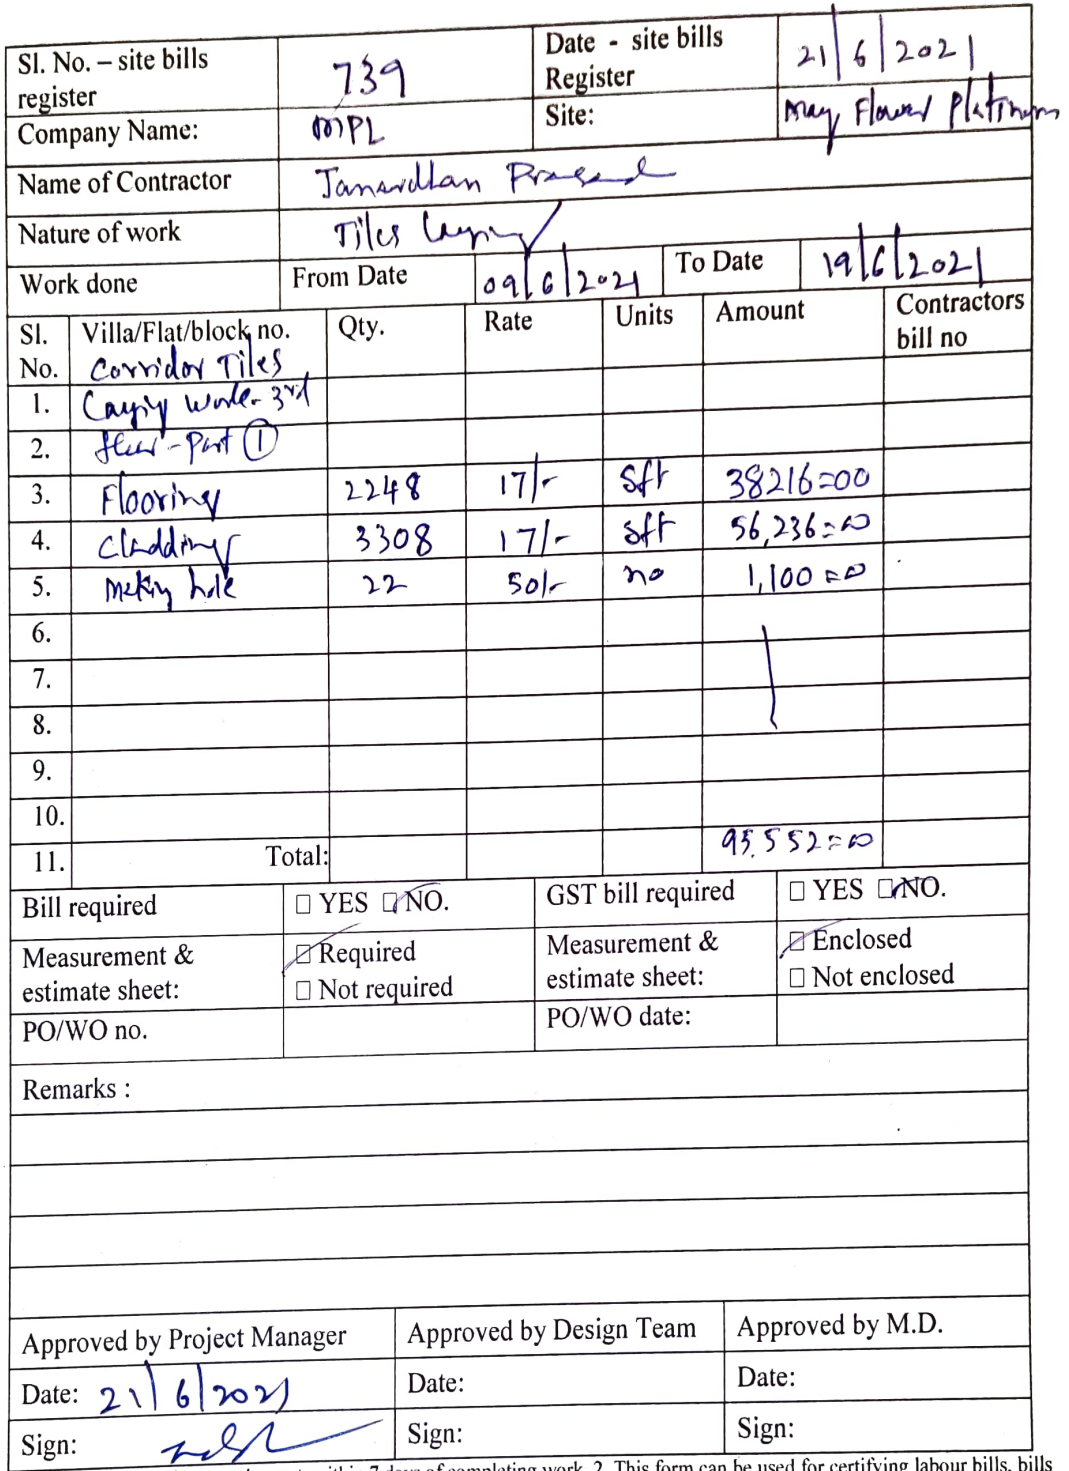 Sl. No. – site bills register 739 Date - site bills Register 21/6/2021
Company Name: MPL Site: May Flower Platinum
Name of Contractor Janardhan Prasad
Nature of work Tiles Laying
Work done From Date 09/6/2021 To Date 19/6/2021
Sl. No. Villa/Flat/block no. Qty. Rate Units Amount Contractors bill no
Corridor Tiles
1. Laying Work- 3rd
2. floor - Part ①
3. Flooring 2248 17/- sft 38216=00
4. Cladding 3308 17/- sft 56,236=00
5. Making hole 22 50/- no 1,100=00
6.
7.
8.
9.
10.
11. Total: 95,552=00
Bill required □ YES □ NO. GST bill required □ YES □ NO.
Measurement & estimate sheet: □ Required □ Not required Measurement & estimate sheet: □ Enclosed □ Not enclosed
PO/WO no. PO/WO date:
Remarks :
Approved by Project Manager Approved by Design Team Approved by M.D.
Date: 21/6/2021 Date: Date:
Sign: Sign: Sign:
7 days of completing work. 2. This form can be used for certifying labour bills, bills